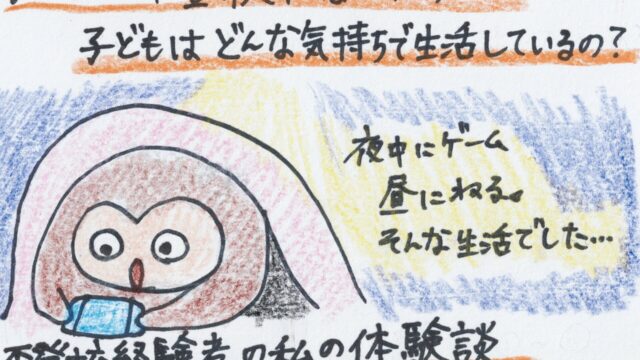 子どもは どんな気持ちで生活しているの？
夜中にゲーム
昼にねる。
そんな生活でした…
不登校経験者の私の体験談